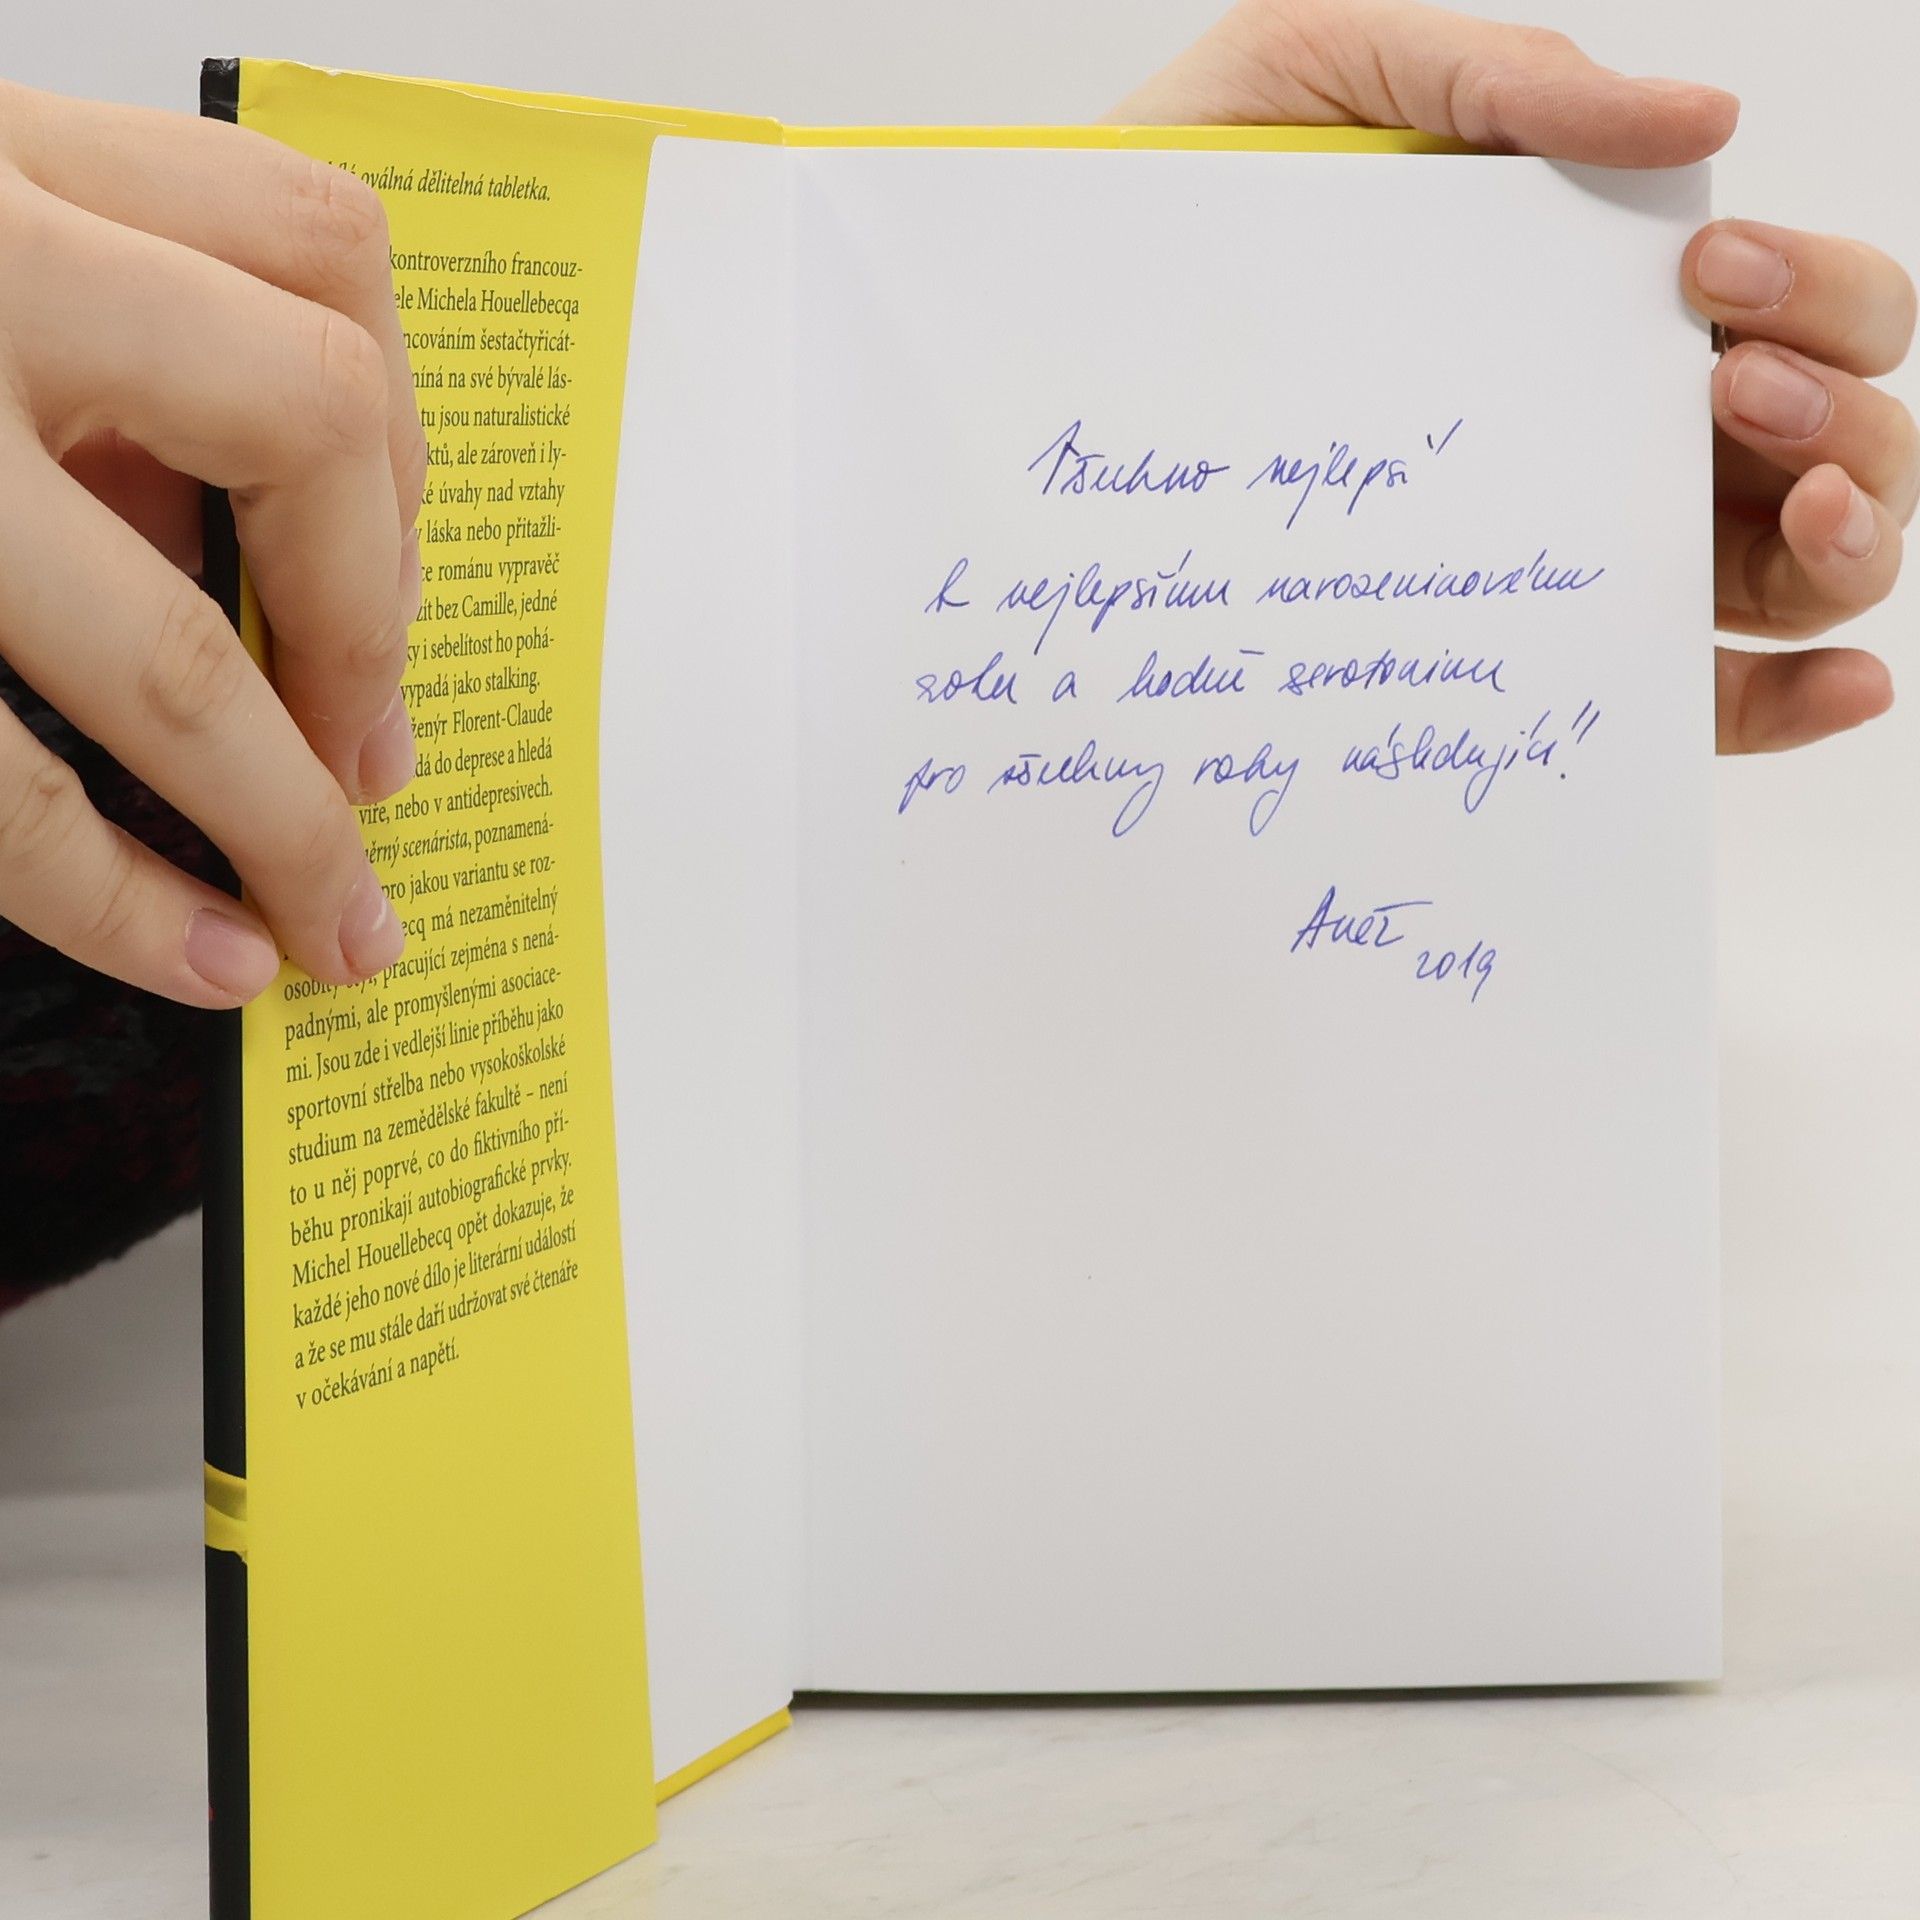 oválná dělitelná tabletka.
kontroverzního francouz-
ele Michela Houellebecqa
ncováním šestačtyřicát-
míná na své bývalé lás-
tu jsou naturalistické
ktů, ale zároveň i ly-
ké úvahy nad vztahy
láska nebo přitažli-
ce románu vypravěč
zít bez Camille, jedné
ky i sebelítost ho pohá-
vypadá jako stalking.
ženýr Florent-Claude
dá do deprese a hledá
víře, nebo v antidepresivech.
scenárista, poznamená-
pro jakou variantu se roz-
ecq má nezaměnitelný
osobitý styl, pracující zejména s nená-
padnými, ale promyšlenými asociace-
mi. Jsou zde i vedlejší linie příběhu jako
sportovní střelba nebo vysokoškolské
studium na zemědělské fakultě – není
to u něj poprvé, co do fiktivního pří-
běhu pronikají autobiografické prvky.
Michel Houellebecq opět dokazuje, že
každé jeho nové dílo je literární událostí
a že se mu stále daří udržovat své čtenáře
v očekávání a napětí.
Všechno nejlepší
k nejlepšímu narozeninovému
roku a hodně serotoninu
pro všechny roky následující!
Anež
2019